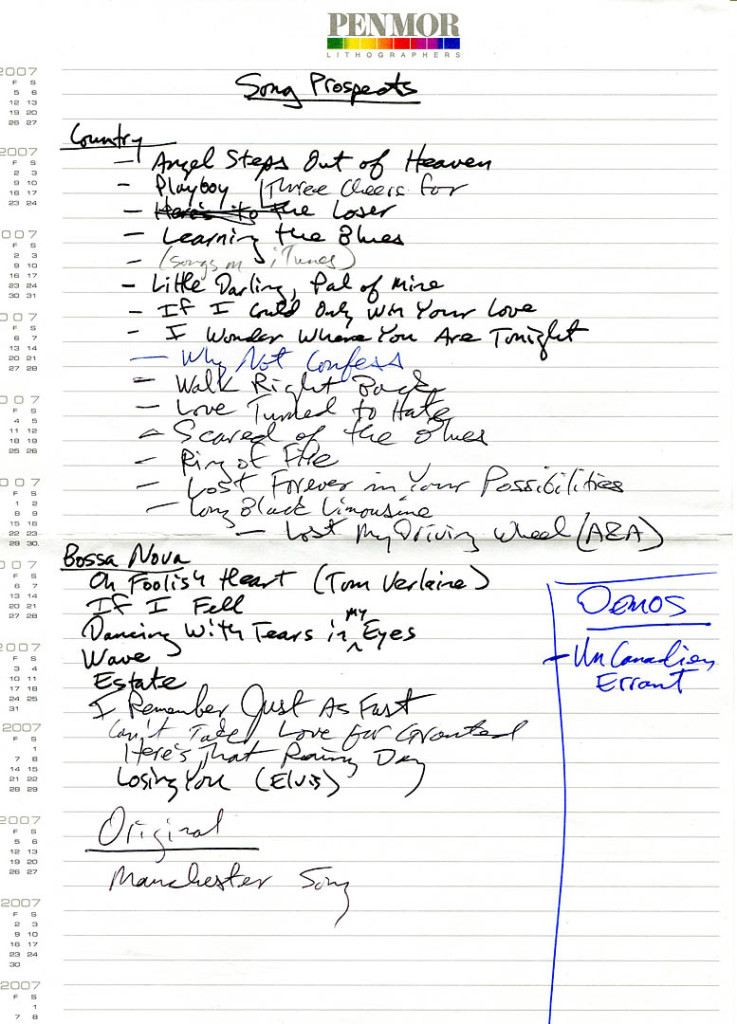 PENMOR
LITHOGRAPHERS
Song Prospects
Country
- Angel Steps Out of Heaven
- Playboy
Three Cheers for
- Here's to the Loser
- Learning the Blues
- (songs on iTunes)
- Little Darling, Pal of Mine
- If I Could Only Win Your Love
- I Wonder Where You Are Tonight
- Why Not Confess
- Walk Right Back
- Love Turned to Hate
- Scared of the Blues
- Ring of Fire
- Lost Forever in Your Possibilities
- Long Black Limousine
- Lost My Driving Wheel (A&A)
Bossa Nova
Oh Foolish Heart (Tom Verlaine)
If I Fell
Dancing With Tears in my Eyes
Wave
Estate
I Remember Just As Fast
Can't Take Love for Granted
Here's That Rainy Day
Losing You (Elvis)
Original
Manchester Song
Demos
- UnCanadian
Errant
2007
F S
5 6
12 13
19 20
26 27
2007
F S
2 3
9 10
16 17
23 24
007
F S
2 3
9 10
16 17
23 24
30 31
007
F S
6 7
13 14
20 21
27 28
007
F S
4 5
11 12
18 19
25 26
007
F S
1 2
8 9
15 16
22 23
29 30
007
F S
6 7
13 14
20 21
27 28
2007
F S
3 4
10 11
17 18
24 25
31
2007
F S
1
7 8
14 15
21 22
28 29
2007
F S
5 6
12 13
19 20
26 27
2007
F S
2 3
9 10
16 17
23 24
30
2007
F S
1
7 8